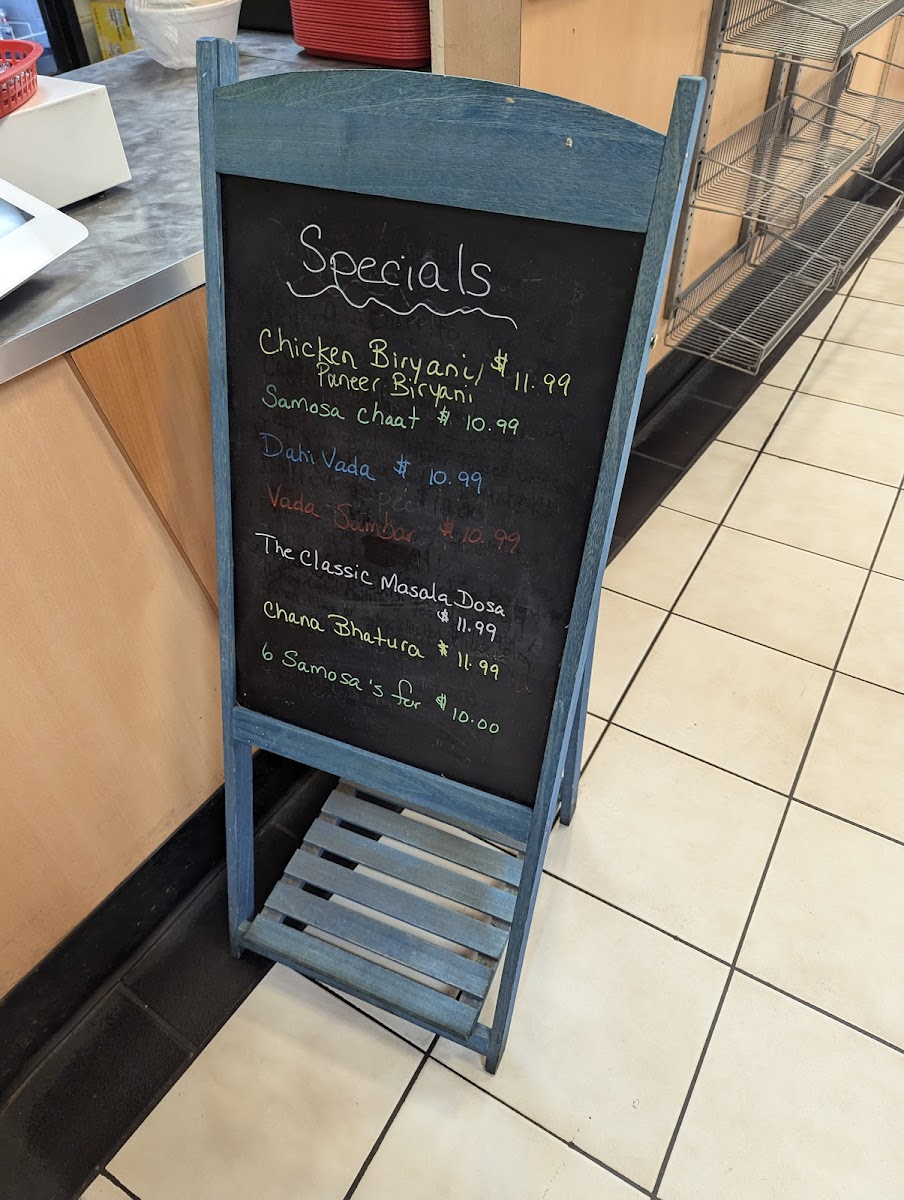 Specials
Chicken Biryani/ $ 11.99
Paneer Biryani
Samosa chaat $ 10.99
Dahi Vada $ 10.99
Vada Sambar $ 10.99
The Classic Masala Dosa
$ 11.99
Chana Bhatura $ 11.99
6 Samosa's for $ 10.00